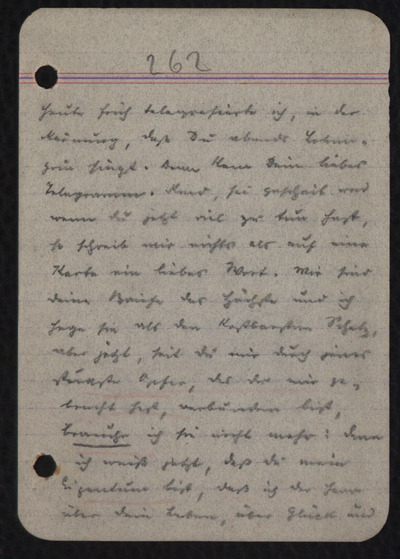 262
Heute früh telegrafierte ich, in der
Meinung, daß Du abends Lohen-
grin singst. Dann kam Dein liebes
Telegramm. Kind, sei gescheit und
wenn Du jetzt viel zu tun hast,
so schreib mir nichts als auf eine
Karte ein liebes Wort. Mir sind
deine Briefe das Höchste und ich
hege sie als den kostbarsten Schatz,
aber jetzt, seit du mir durch jenes
stärkste Opfer, das du mir ge-
bracht hast, verbunden bist,
brauche ich sie nicht mehr: denn
ich weiß jetzt, daß du mein
Eigentum bist, daß ich der Herr
über dein Leben, über Glück und